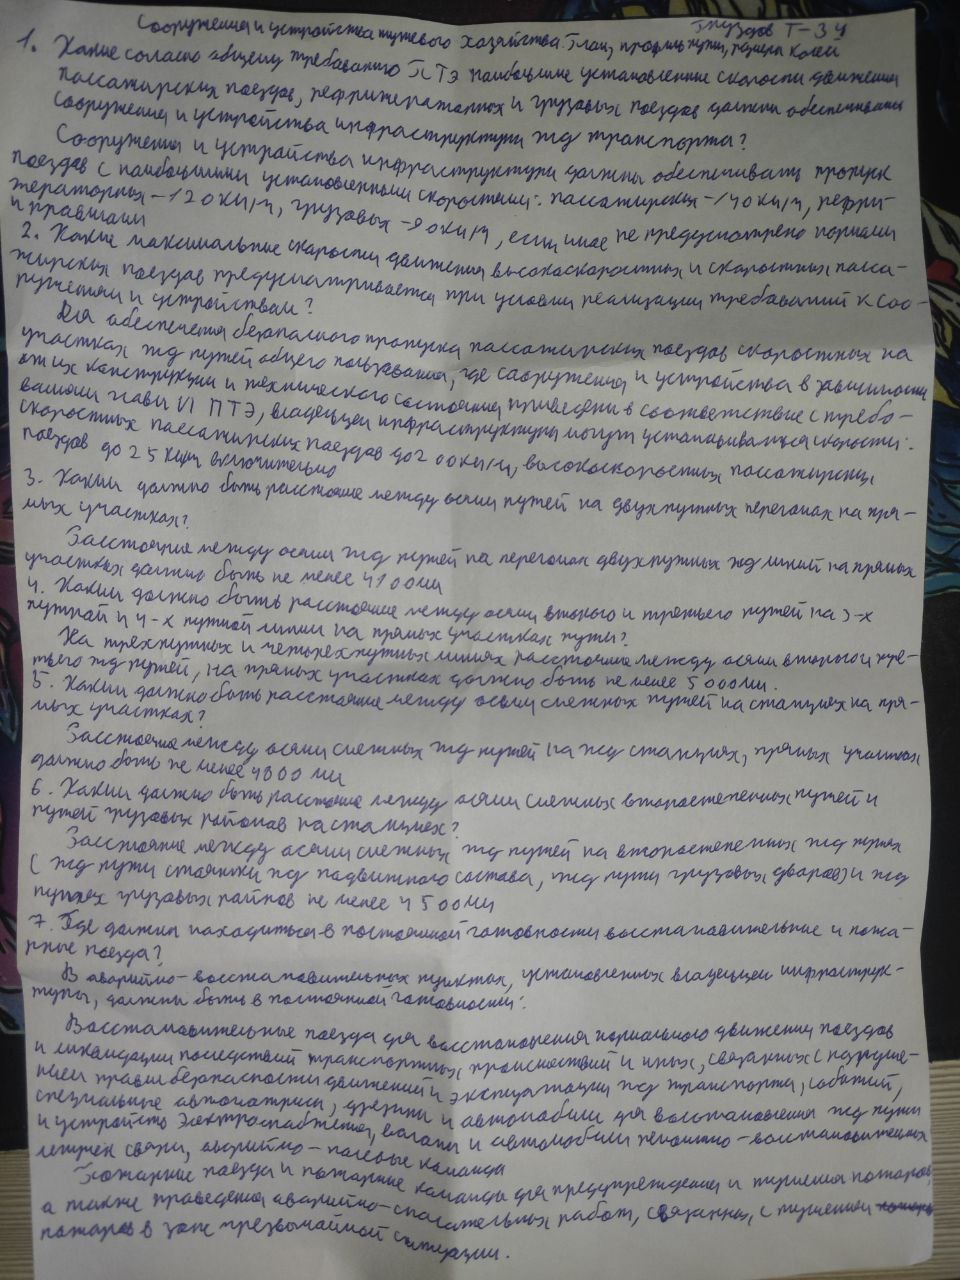 Груздов Т-34
Сооружения и устройства путевого хозяйства. План, профиль пути, ширина колеи
1. Какие согласно общему требованию ПТЭ наибольшие установленные скорости движения
пассажирских поездов, рефрижераторных и грузовых поездов должны обеспечивать
сооружения и устройства инфраструктуры жд транспорта?
Сооружения и устройства инфраструктуры должны обеспечивать пропуск
поездов с наибольшими установленными скоростями: пассажирских - 140 км/ч, рефри-
жераторных - 120 км/ч, грузовых - 90 км/ч, если иное не предусмотрено нормами
и правилами
2. Какие максимальные скорости движения высокоскоростных и скоростных пасса-
жирских поездов предусматривается при условии реализации требований к соо-
ружениям и устройствам?
Для обеспечения безопасного пропуска пассажирских поездов скоростных на
участках жд путей общего пользования, где сооружения и устройства в зависимости
от их конструкции и технического состояния приведены в соответствие с требо-
ваниями главы VI ПТЭ, владельцем инфраструктуры могут устанавливаться скорости:
скоростных пассажирских поездов до 200 км/ч, высокоскоростных пассажирских
поездов до 25 км/ч включительно
3. Каким должно быть расстояние между осями путей на двухпутных перегонах на пря-
мых участках?
Расстояние между осями жд путей на перегонах двухпутных жд линий на прямых
участках должно быть не менее 4100 мм
4. Каким должно быть расстояние между осями второго и третьего путей на 3-х
путной и 4-х путной линии на прямых участках пути?
На трехпутных и четырехпутных линиях расстояние между осями второго и тре-
тьего жд путей, на прямых участках должно быть не менее 5000 мм.
5. Каким должно быть расстояние между осями смежных путей на станциях на пря-
мых участках?
Расстояние между осями смежных жд путей на жд станциях, прямых участках
должно быть не менее 4800 мм
6. Каким должно быть расстояние между осями смежных второстепенных путей и
путей грузовых районов на станциях?
Расстояние между осями смежных жд путей на второстепенных жд путях
(жд пути стоянки жд подвижного состава, жд пути грузовых дворов) и жд
путях грузовых районов не менее 4500 мм
7. Где должны находиться в постоянной готовности восстановительные и пожа-
рные поезда?
В аварийно-восстановительных пунктах, установленных владельцем инфраструк-
туры, должны быть в постоянной готовности:
Восстановительные поезда для восстановления нормального движения поездов
и ликвидации последствий транспортных происшествий и иных, связанных с наруше-
нием правил безопасности движений и эксплуатации жд транспорта, событий,
специальные автомотрисы, дрезины и автомобили для восстановления жд пути
и устройств электроснабжения, вагоны и автомобили ремонтно-восстановительных
летучек связи, аварийно-полевые команды
Пожарные поезда и пожарные команды для предупреждения и тушения пожаров,
а также проведения аварийно-спасательных работ, связанных, с тушением
пожаров в зоне чрезвычайной ситуации.